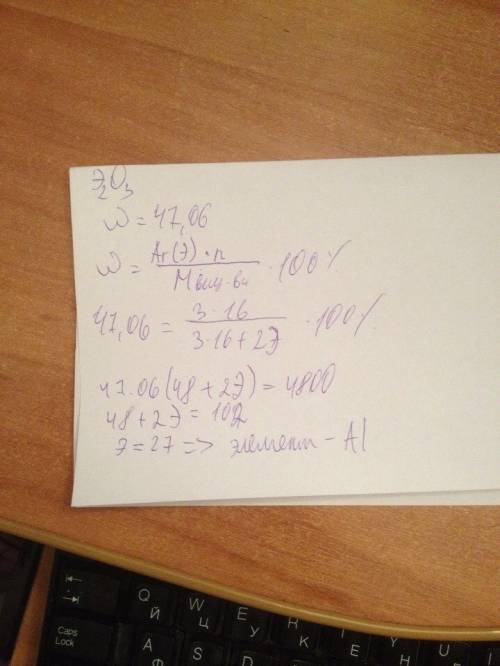 Э₂O₃
ω = 47,06
ω = Ar(Э)·n / Mвщ-ва · 100%
47,06 = 3·16 / 3·16+2Э · 100%
47.06(48+2Э) = 4800
48+2Э = 102
Э = 27 => элемент - Al
Q Й
W Ц
E У
Caps Lock
A Ф
S
D